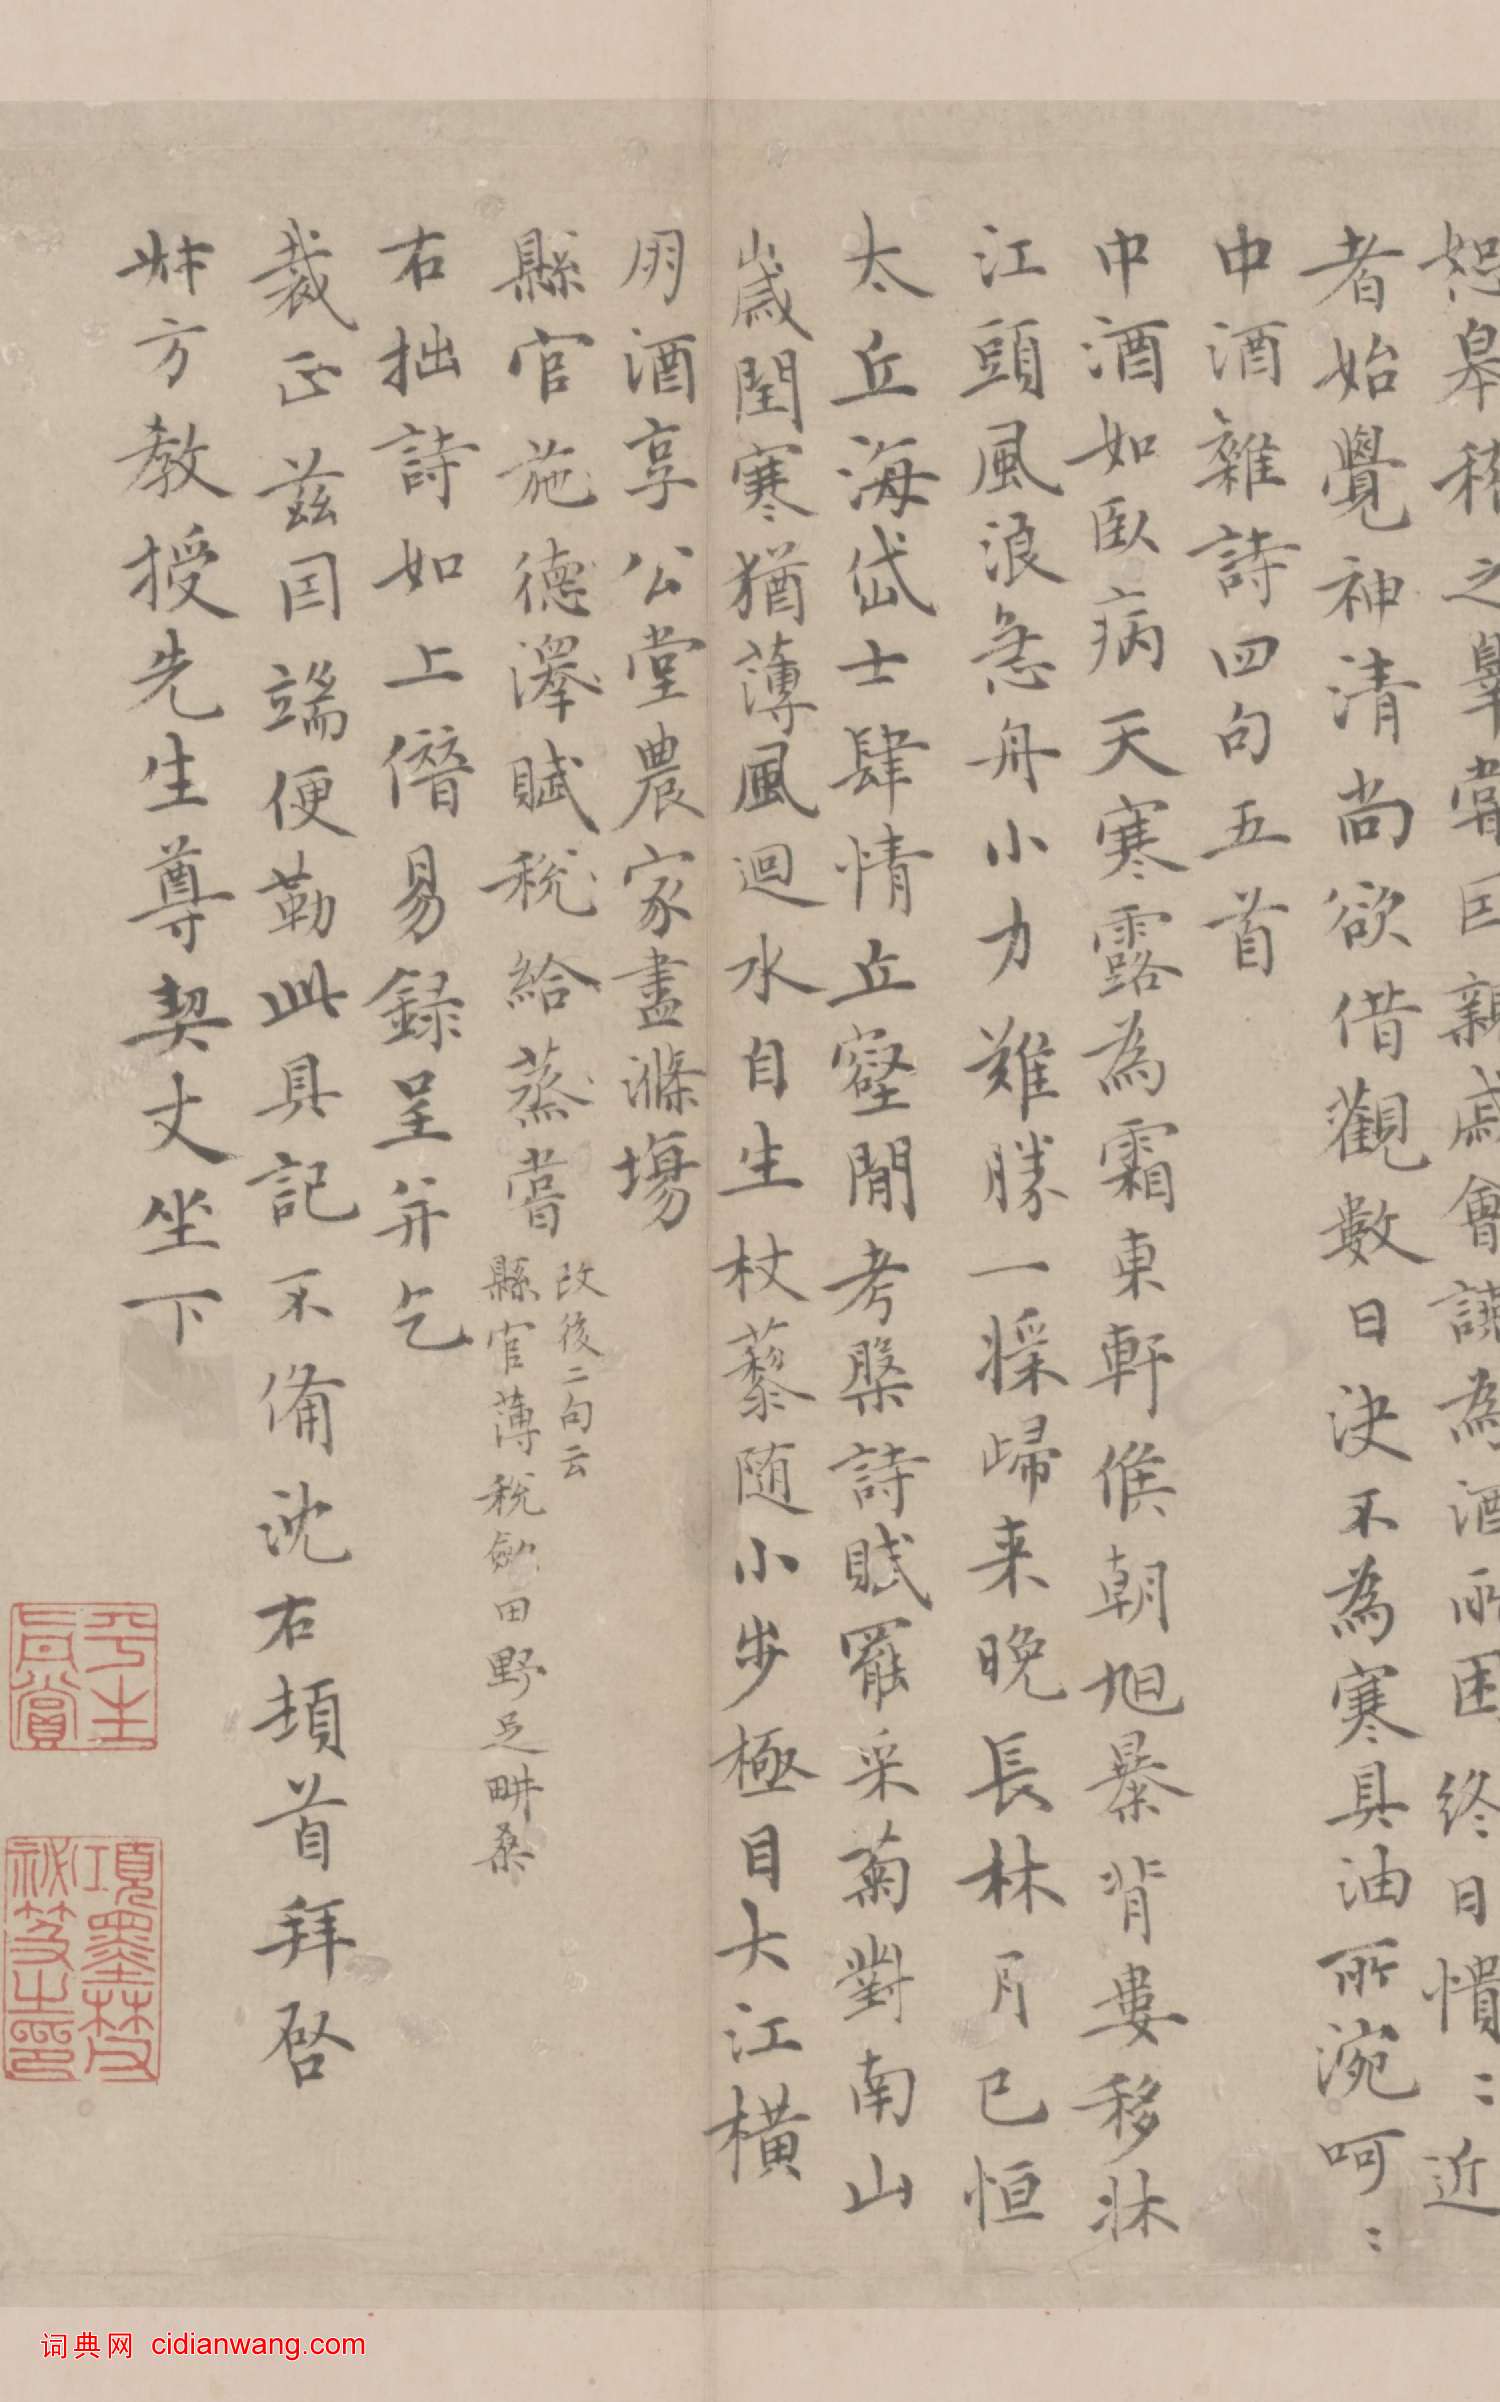 恕皋稽之辠嘗因親戚會讌為酒所困終日憒〻近
者始覺神清尚欲借觀數日決不為寒具油所涴呵〻
中酒雜詩四句五首
中酒如臥病天寒露為霜東軒候朝旭暴背婁移牀
江頭風浪急舟小力難勝一槳歸来晚長林月已恒
太丘海岱士肆情丘壑閒考槃詩賦罷采菊對南山
歲閏寒猶薄風迴水自生杖藜随小步極目大江橫
朋酒享公堂農家盡滌場
縣官施德澤賦稅給蒸嘗
改後二句云
縣官薄稅斂田野足畊桑
右拙詩如上僭易録呈并乞
裁正兹因端便勒此具記不備沈右頓首拜啓
艸方教授先生尊契丈坐下
平生真賞
項墨林父祕笈之印
词典网 cidianwang.com